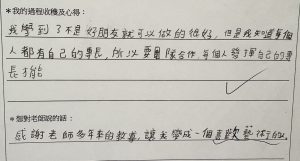 *我的過程收穫及心得：
我學到了不是好朋友就可以做的很好，但是我知道每個
人都有自己的專長，所以要團隊合作，每個人發揮自己的專
長才能
*想對老師說的話：
感謝老師多年來的教導，讓我變成一個喜歡藝術的人。